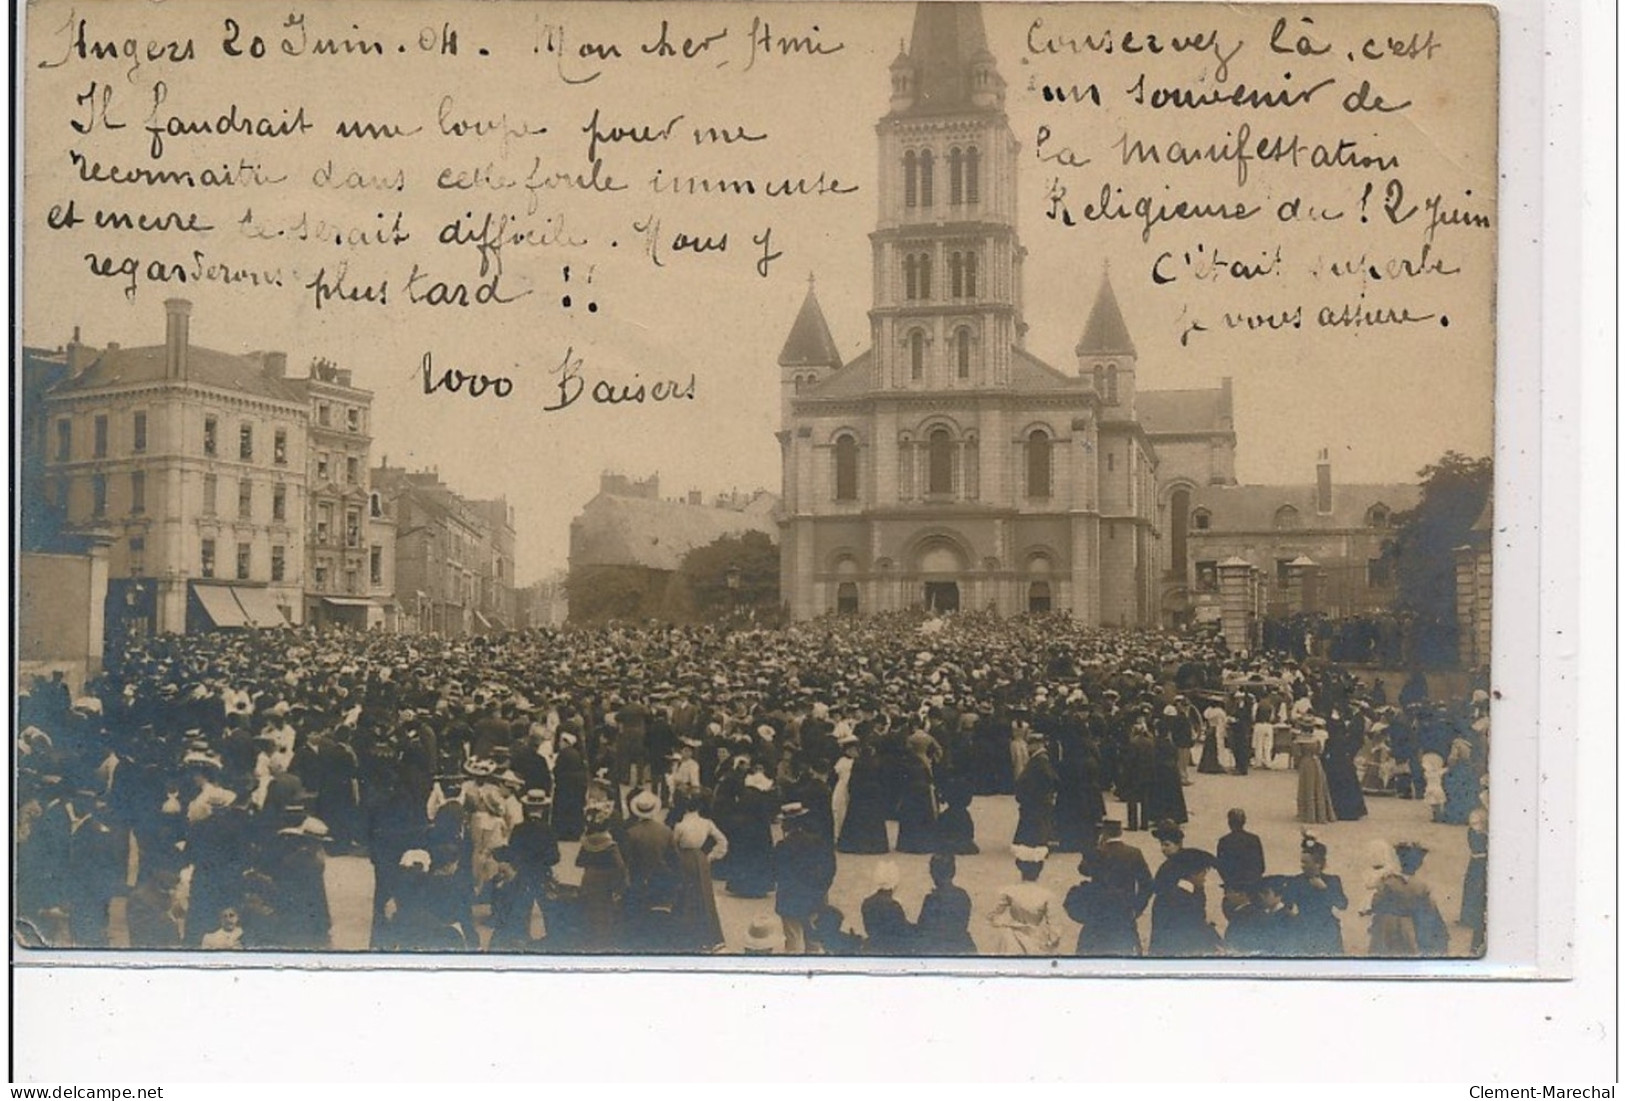 Angers 20 Juin . 04 . Mon cher Ami
Il faudrait une loupe pour me
reconnaitre dans cette foule immense
et encore ce serait difficile . Nous y
regarderons plus tard !!
1000 Baisers
Conservez là , c'est
un souvenir de
la Manifestation
Religieuse du 12 Juin
C'était superbe
je vous assure .
www.delcampe.net
Clement-Marechal